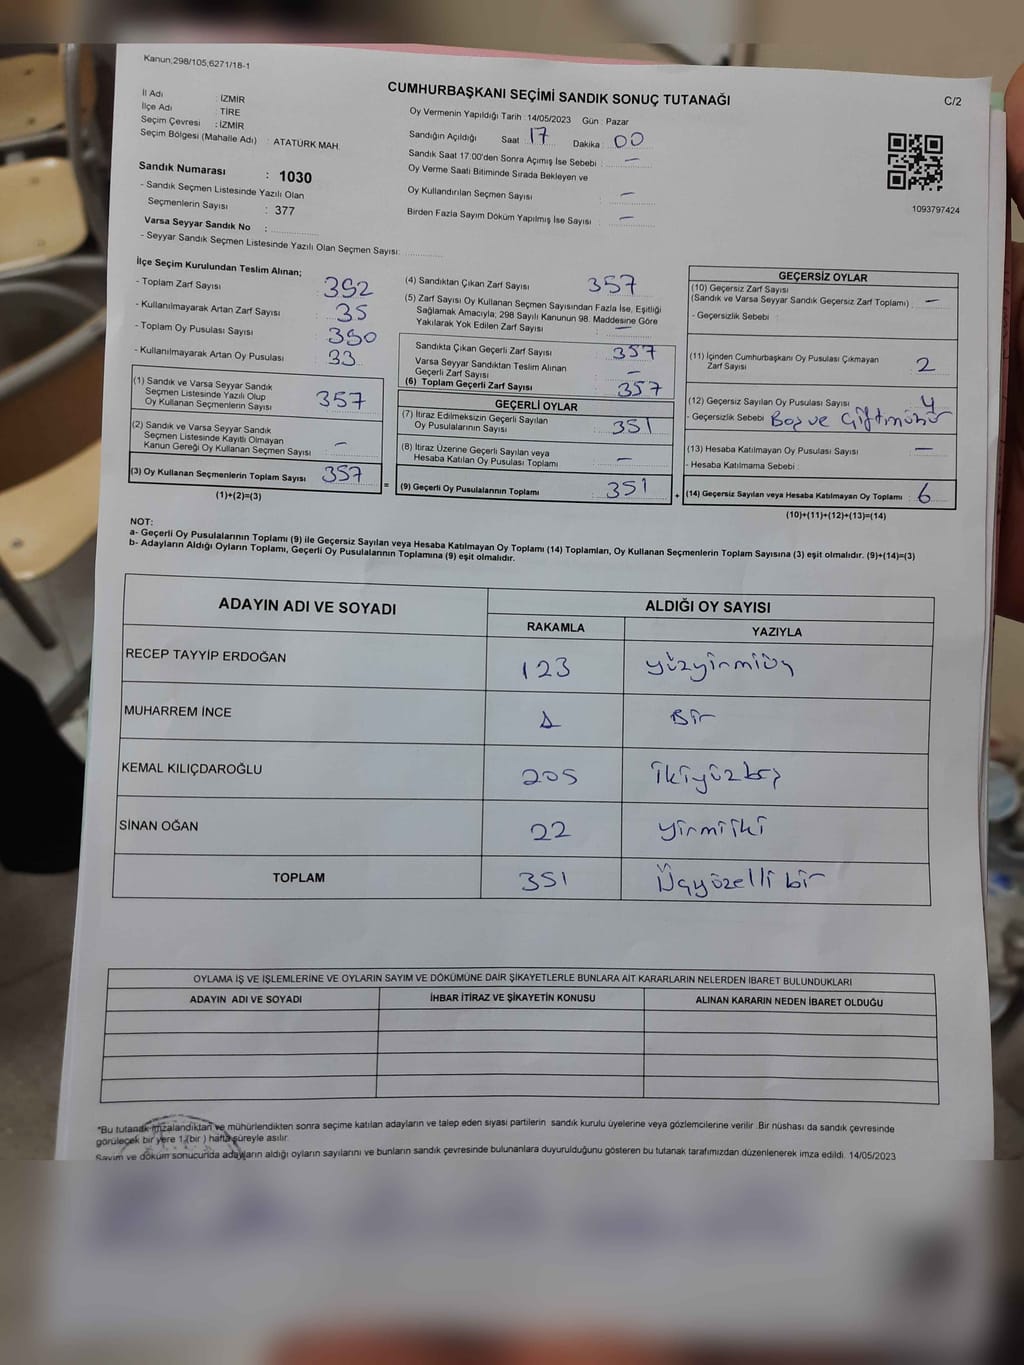 Kanun,298/105,6271/18-1
CUMHURBAŞKANI SEÇİMİ SANDIK SONUÇ TUTANAĞI
C/2
İl Adı : İZMİR
İlçe Adı : TİRE
Seçim Çevresi : İZMİR
Seçim Bölgesi (Mahalle Adı) : ATATÜRK MAH.
Oy Vermenin Yapıldığı Tarih : 14/05/2023 Gün : Pazar
Sandığın Açıldığı Saat : 17 Dakika : 00
Sandık Saat 17:00'den Sonra Açımış İse Sebebi : —
Oy Verme Saati Bitiminde Sırada Bekleyen ve
Oy Kullandırılan Seçmen Sayısı : —
Birden Fazla Sayım Döküm Yapılmış İse Sayısı : —
1093797424
Sandık Numarası : 1030
- Sandık Seçmen Listesinde Yazılı Olan
Seçmenlerin Sayısı : 377
Varsa Seyyar Sandık No :
- Seyyar Sandık Seçmen Listesinde Yazılı Olan Seçmen Sayısı:
İlçe Seçim Kurulundan Teslim Alınan;
- Toplam Zarf Sayısı : 392
- Kullanılmayarak Artan Zarf Sayısı : 35
- Toplam Oy Pusulası Sayısı : 390
- Kullanılmayarak Artan Oy Pusulası : 33
(1) Sandık ve Varsa Seyyar Sandık
Seçmen Listesinde Yazılı Olup
Oy Kullanan Seçmenlerin Sayısı : 357
(2) Sandık ve Varsa Seyyar Sandık
Seçmen Listesinde Kayıtlı Olmayan
Kanun Gereği Oy Kullanan Seçmen Sayısı : —
(3) Oy Kullanan Seçmenlerin Toplam Sayısı : 357
(1)+(2)=(3)
=
(4) Sandıktan Çıkan Zarf Sayısı : 357
(5) Zarf Sayısı Oy Kullanan Seçmen Sayısından Fazla İse, Eşitliği
Sağlamak Amacıyla; 298 Sayılı Kanunun 98. Maddesine Göre
Yakılarak Yok Edilen Zarf Sayısı : —
Sandıkta Çıkan Geçerli Zarf Sayısı : 357
Varsa Seyyar Sandıktan Teslim Alınan
Geçerli Zarf Sayısı : —
(6) Toplam Geçerli Zarf Sayısı : 357
GEÇERLİ OYLAR
(7) İtiraz Edilmeksizin Geçerli Sayılan
Oy Pusulalarının Sayısı : 351
(8) İtiraz Üzerine Geçerli Sayılan veya
Hesaba Katılan Oy Pusulası Toplamı : —
(9) Geçerli Oy Pusulalarının Toplamı : 351
+
GEÇERSİZ OYLAR
(10) Geçersiz Zarf Sayısı
(Sandık ve Varsa Seyyar Sandık Geçersiz Zarf Toplamı) : —
- Geçersizlik Sebebi :
(11) İçinden Cumhurbaşkanı Oy Pusulası Çıkmayan
Zarf Sayısı : 2
(12) Geçersiz Sayılan Oy Pusulası Sayısı : 4
- Geçersizlik Sebebi : Boş ve Çift mühür
(13) Hesaba Katılmayan Oy Pusulası Sayısı : —
- Hesaba Katılmama Sebebi :
(14) Geçersiz Sayılan veya Hesaba Katılmayan Oy Toplamı : 6
(10)+(11)+(12)+(13)=(14)
NOT:
a- Geçerli Oy Pusulalarının Toplamı (9) ile Geçersiz Sayılan veya Hesaba Katılmayan Oy Toplamı (14) Toplamları, Oy Kullanan Seçmenlerin Toplam Sayısına (3) eşit olmalıdır. (9)+(14)=(3)
b- Adayların Aldığı Oyların Toplamı, Geçerli Oy Pusulalarının Toplamına (9) eşit olmalıdır.
ADAYIN ADI VE SOYADI
ALDIĞI OY SAYISI
RAKAMLA
YAZIYLA
RECEP TAYYİP ERDOĞAN 123 yüzyirmiüç
MUHARREM İNCE 1 Bir
KEMAL KILIÇDAROĞLU 205 ikiyüzbeş
SİNAN OĞAN 22 yirmiiki
TOPLAM 351 Üçyüzelli bir
OYLAMA İŞ VE İŞLEMLERİNE VE OYLARIN SAYIM VE DÖKÜMÜNE DAİR ŞİKAYETLERLE BUNLARA AİT KARARLARIN NELERDEN İBARET BULUNDUKLARI
ADAYIN ADI VE SOYADI
İHBAR İTİRAZ VE ŞİKAYETİN KONUSU
ALINAN KARARIN NEDEN İBARET OLDUĞU
*Bu tutanak imzalandıktan ve mühürlendikten sonra seçime katılan adayların ve talep eden siyasi partilerin sandık kurulu üyelerine veya gözlemcilerine verilir .Bir nüshası da sandık çevresinde
görülecek bir yere 1 (bir ) hafta süreyle asılır.
Sayım ve döküm sonucunda adayların aldığı oyların sayılarını ve bunların sandık çevresinde bulunanlara duyurulduğunu gösteren bu tutanak tarafımızdan düzenlenerek imza edildi. 14/05/2023